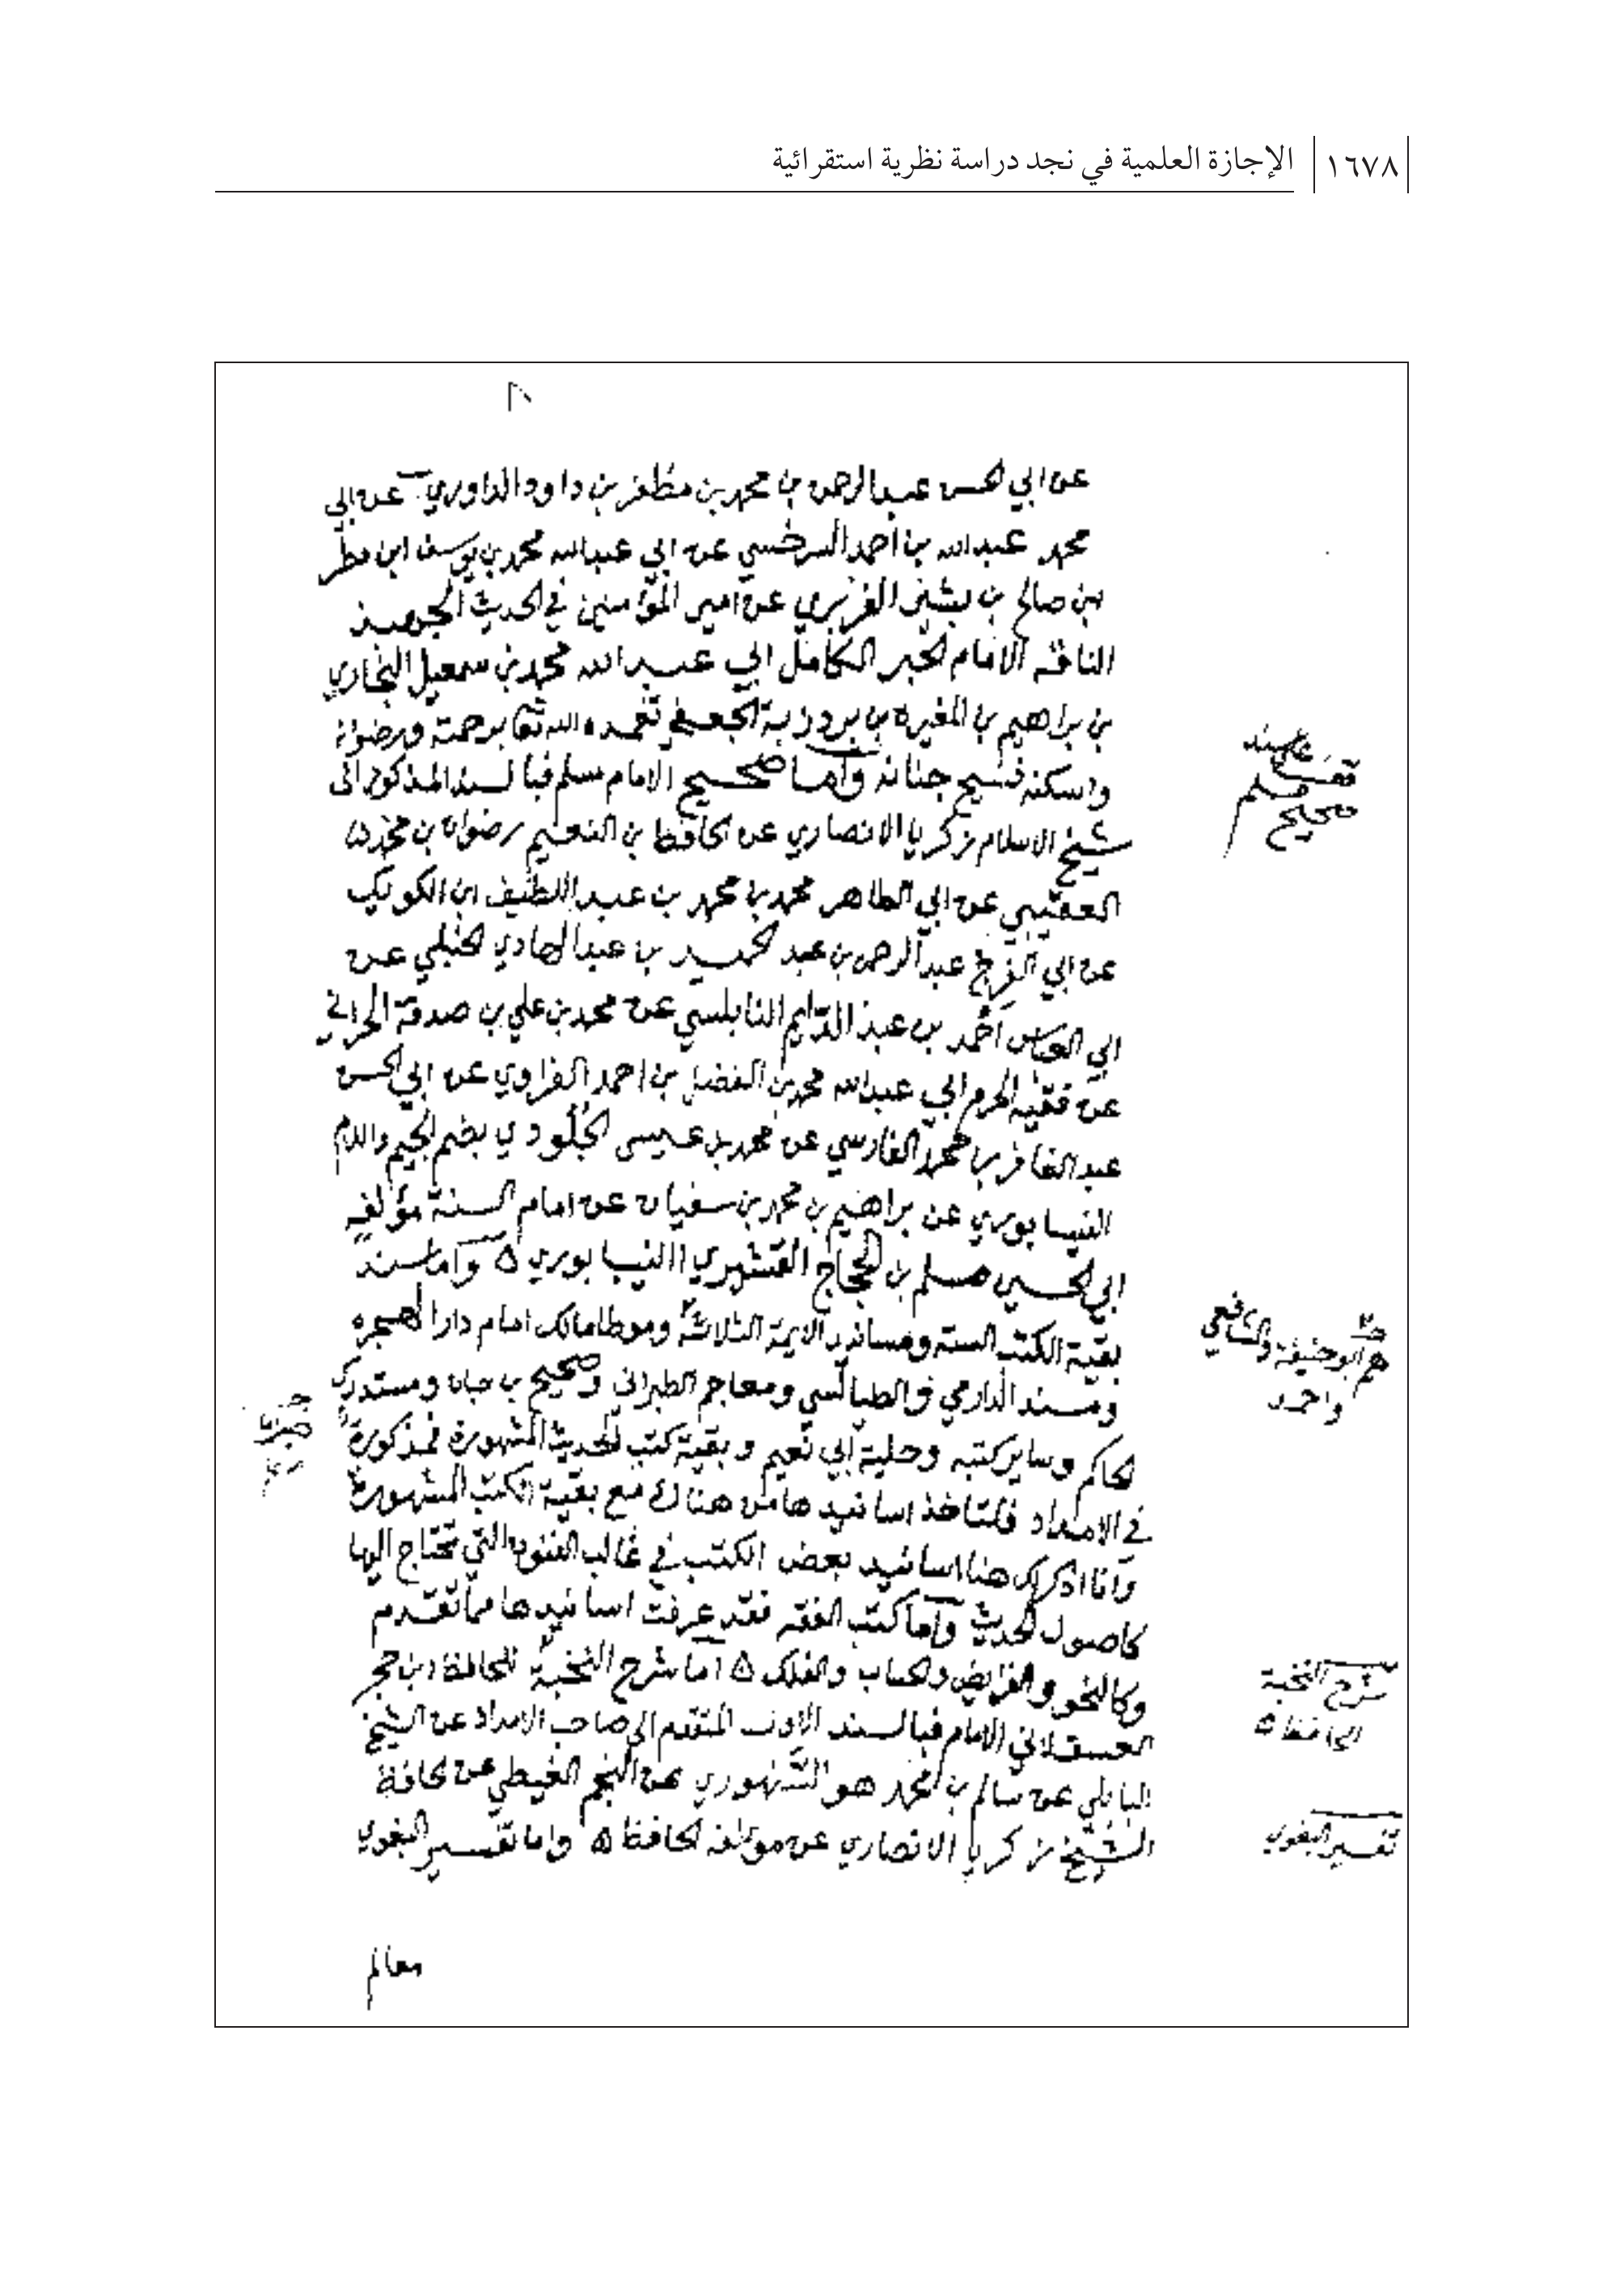 ١٦٧٨ الإجازة العلمية في نجد دراسة نظرية استقرائية
عن ابي الحسن عبدالرحمن بن محمد بن مظفر بن داود الداوري عن ابي
محمد عبدالله بن أحمد السرخسي عن ابي عبدالله محمد بن يوسف ابن مطر
ابن صالح بن بشر الفربري عن امير المؤمنين في الحديث الجهبذ
الناقد الامام الحبر الكامل ابي عبدالله محمد بن سمعيل البخاري
بن براهيم بن المغيره بن بردزبة الجعفي تغمده الله تعا برحمته ورضوانه
واسكنه فسيح جنانه وأما صحيح الامام مسلم فبالسند المذكور الى
شيخ الاسلام زكريا الانصاري عن الحافظ بن النعيم رضوان بن محمد
العقبي عن ابي الطاهر محمد بن محمد بن عبد اللطيف ابن الكويك
عن ابي الفرج عبدالرحمن بن عبد الحميد بن عبدالهادي الحنبلي عن
ابي العباس أحمد بن عبد الدايم النابلسي عن محمد بن علي بن صدقة الحراني
عن فقيه الحرم ابي عبدالله محمد بن الفضل بن احمد الفراوي عن ابي الحسن
عبد الغافر بن محمد الفارسي عن محمد بن عيسى الجلودي بضم الجيم واللام
النيسابوري عن براهيم بن محمد بن سفيان عن امام السنة مؤلفه
ابي الحسين مسلم بن الحجاج القشيري النيسابوري ۵ وأما سند
بقية الكتب الستة ومساند الايمة الثلاثة وموطا مالك امام دار الهجره
ومسند الدارمي والطيالسي ومعاجم الطبراني وصحيح بن حبان ومستدرك
الحاكم وساير كتبه وحلية ابي نعيم وبقية كتب الحديث المشهورة فمذكورة
في الامداد فلتاخذ اسانيدها من هناك مع بقية الكتب المشهورة
وانا اذكر لك هنا اسانيد بعض الكتب في غالب الفنون التي تحتاج اليها
كاصول الحديث وأما كتب الفقه فقد عرفت اسانيدها مما تقدم
وكالنحو والفرايض والحساب والفلك ۵ أما شرح النخبة للحافظ ابن حجر
العسقلاني الامام فبالسند الاول المتقدم الى صاحب الامداد عن الشيخ
البابلي عن سالم بن محمد هو السنهوري عن النجم الغيطي عن الحافظ
الشيخ زكريا الانصاري عن مولفه الحافظ ۵ واما تفسير البغوي
معالم
مسلم
صحيح
هم ابو حنيفة والشافعي
واحمد
شرح النخبة
الحافظ ۵
تفسير البغوي